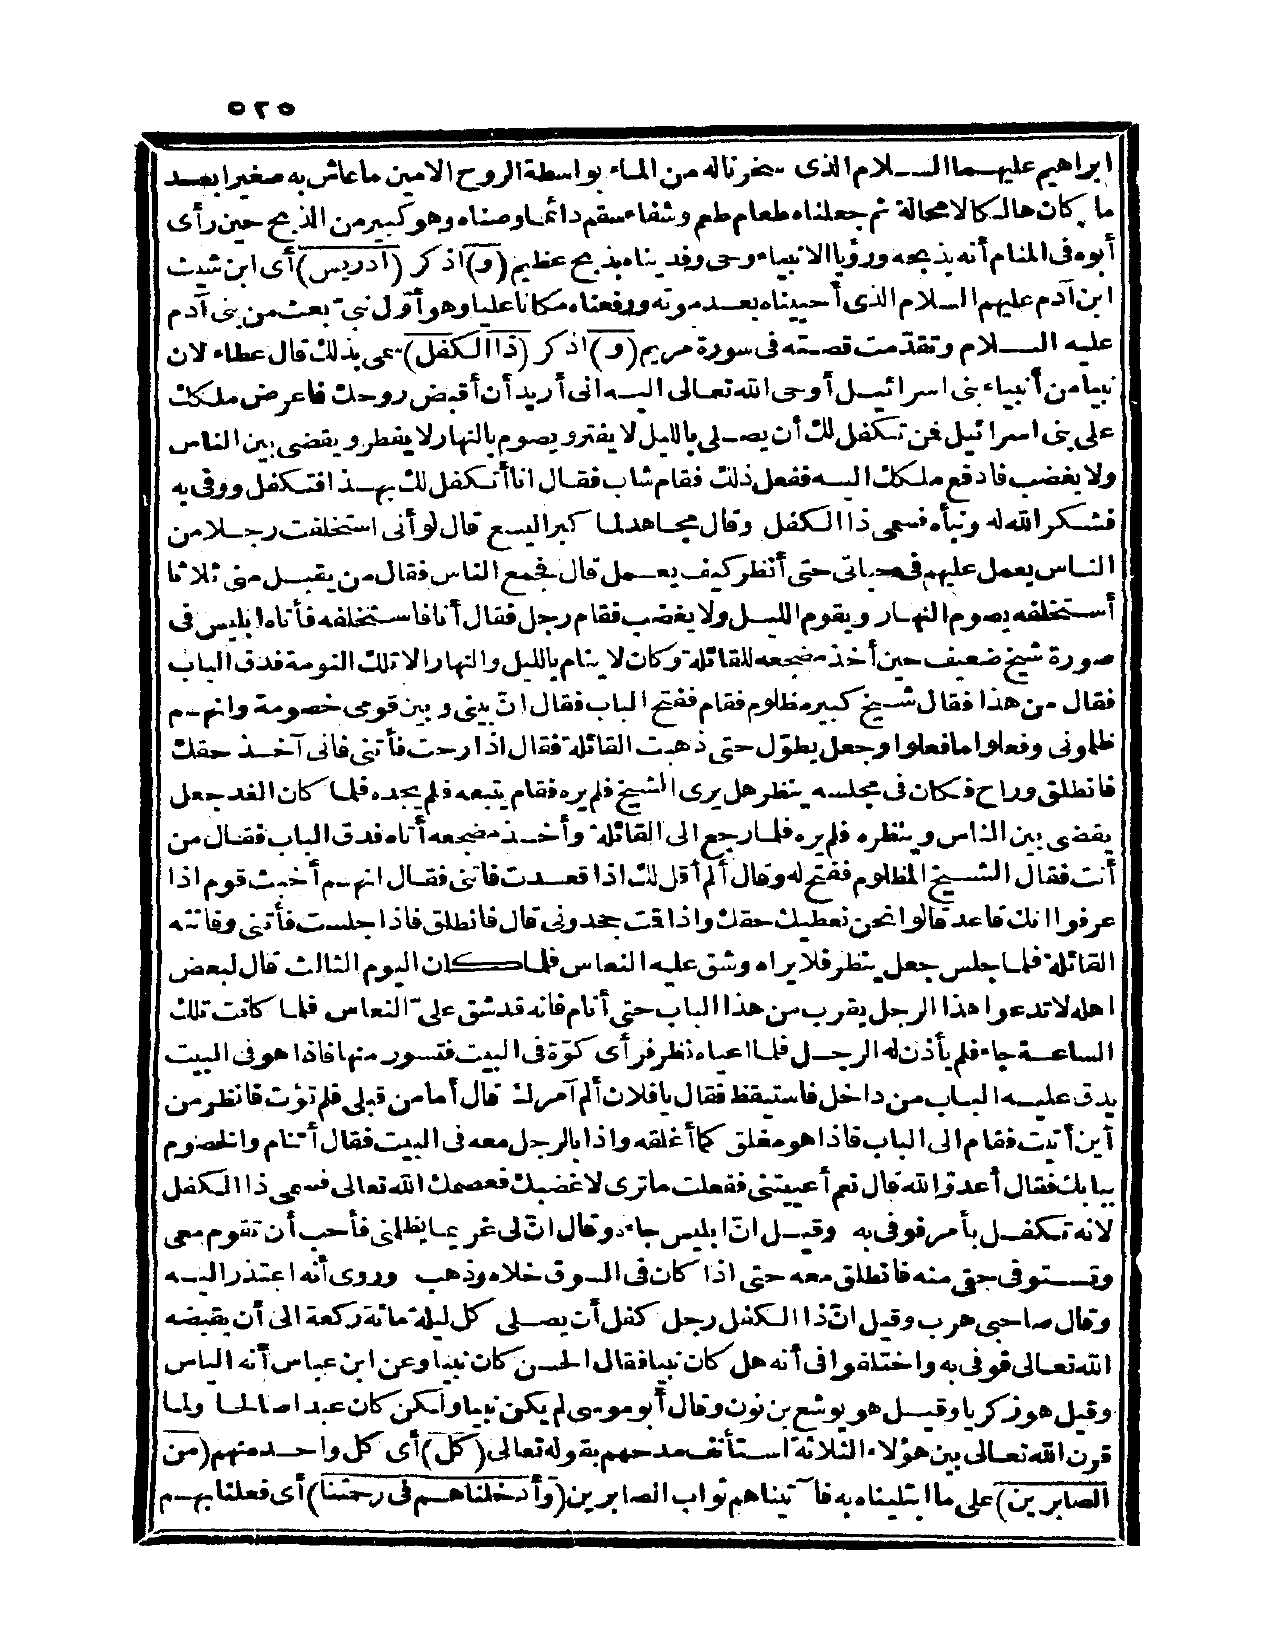 ٥٢٥
ابراهيم عليهما السلام الذى سخرنا له من الماء بواسطة الروح الامين ما عاش به صغيرا بعد
ما كان هالكا لا محالة ثم جعلناه طعام طعم وشفاء سقم دائما وصناه وهو كبير من الذبح حين رأى
أبوه فى المنام أنه يذبحه ورؤيا الانبياء وحى وفديناه بذبح عظيم (و) اذكر (ادريس) أى ابن شيث
ابن آدم عليهم السلام الذى أحييناه بعد موته ورفعناه مكانا عليا وهو أول نبى بعث من بنى آدم
عليه السلام وتقدمت قصته فى سورة مريم (و) اذكر (ذا الكفل) سمى بذلك قال عطاء لان
نبيا من أنبياء بنى اسرائيل أوحى الله تعالى اليه انى أريد أن أقبض روحك فاعرض ملكك
على بنى اسرائيل فمن تكفل لك أن يصلى بالليل لا يفتر ويصوم بالنهار لا يفطر ويقضى بين الناس
ولا يغضب فادفع ملكك اليه ففعل ذلك فقام شاب فقال انا أتكفل لك بهذا فتكفل ووفى به
فشكر الله له ونبأه فسمى ذا الكفل وقال مجاهد لما كبر اليسع قال لو أنى استخلفت رجلا من
الناس يعمل عليهم فى حياتى حتى أنظر كيف يعمل قال فجمع الناس فقال من يقبل منى ثلاثا
أستخلفه يصوم النهار ويقوم الليل ولا يغضب فقام رجل فقال أنا فاستخلفه فأتاه ابليس فى
صورة شيخ ضعيف حين أخذ مضجعه للقائلة وكان لا ينام بالليل والنهار الا تلك النومة فدق الباب
فقال من هذا فقال شيخ كبير مظلوم فقام ففتح الباب فقال ان بينى وبين قومى خصومة وانهم
ظلمونى وفعلوا ما فعلوا وجعل يطول حتى ذهبت القائلة فقال اذا رحت فأتنى فانى آخذ حقك
فانطلق وراح فكان فى مجلسه ينظر هل يرى الشيخ فلم يره فقام يتبعه فلم يجده فلما كان الغد جعل
يقضى بين الناس وينتظره فلم يره فلما رجع الى القائلة وأخذ مضجعه أتاه فدق الباب فقال من
أنت فقال الشيخ المظلوم ففتح له وقال ألم أقل لك اذا قعدت فاتنى فقال انهم أخبث قوم اذا
عرفوا انك قاعد قالوا نحن نعطيك حقك واذا قمت جحدونى قال فانطلق فاذا جلست فأتنى وفاتته
القائلة فلما جلس جعل ينتظر فلا يراه وشق عليه النعاس فلما كان اليوم الثالث قال لبعض
اهله لا تدعوا هذا الرجل يقرب من هذا الباب حتى أنام فانه قد شق على النعاس فلما كانت تلك
الساعة جاء فلم يأذن له الرجل فلما اعياه نظر فرأى كوة فى البيت فتسور منها فاذا هو فى البيت
يدق عليه الباب من داخل فاستيقظ فقال يا فلان ألم آمرك قال أما من قبلى فلم تؤت فانظر من
أين أتيت فقام الى الباب فاذا هو مغلق كما أغلقه واذا بالرجل معه فى البيت فقال أتنام والخصوم
ببابك فقال أعدو الله قال نعم أعييتنى ففعلت ما ترى لاغضبك فعصمك الله تعالى فسمى ذا الكفل
لانه تكفل بأمر فوفى به وقيل ان ابليس جاءه وقال ان لى غريما يظلمنى فأحب أن تقوم معى
وتستوفى حقى منه فانطلق معه حتى اذا كان فى السوق خلاه وذهب وروى أنه اعتذر اليه
وقال صاحبى هرب وقيل ان ذا الكفل رجل كفل أن يصلى كل ليلة مائة ركعة الى أن يقبضه
الله تعالى فوفى به واختلفوا فى أنه هل كان نبيا فقال الحسن كان نبيا وعن ابن عباس أنه الياس
وقيل هو زكريا وقيل هو يوشع بن نون وقال أبو موسى لم يكن نبيا ولكن كان عبدا صالحا ولما
قرن الله تعالى بين هؤلاء الثلاثة استأنف مدحهم بقوله تعالى (كل) أى كل واحد منهم (من
الصابرين) على ما ابتليناه به فآتيناهم ثواب الصابرين (وأدخلناهم فى رحمتنا) أى فعلنا بهم